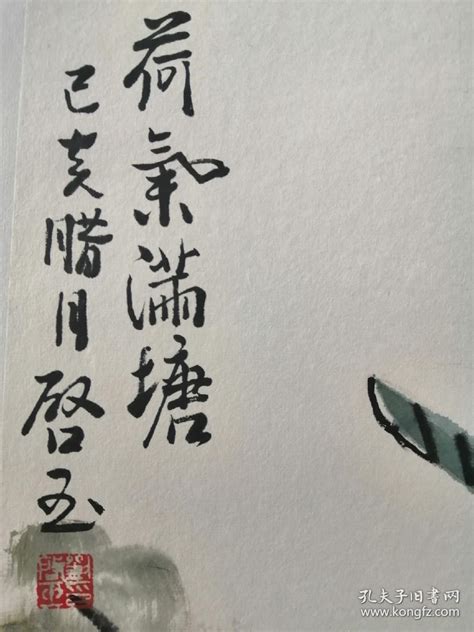 荷氣滿塘
己亥腊月啓玉
孔夫子旧书网
www.kongfz.com